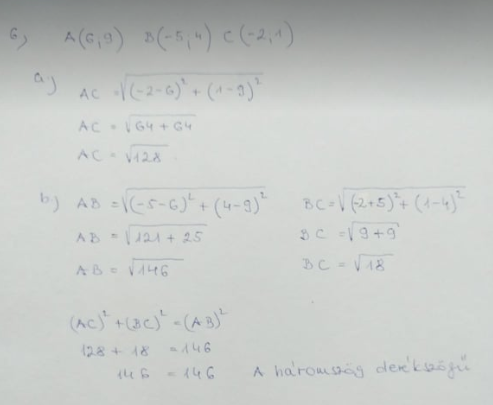 6) A(6,9) B(-5,4) C(-2,1)
a) AC = √((-2-6)² + (1-9)²)
AC = √(64 + 64)
AC = √128
b) AB = √((-5-6)² + (4-9)²)
AB = √(121 + 25)
AB = √146
BC = √((-2+5)² + (1-4)²)
BC = √(9+9)
BC = √18
(AC)² + (BC)² = (AB)²
128 + 18 = 146
146 = 146 A háromszög derékszögű